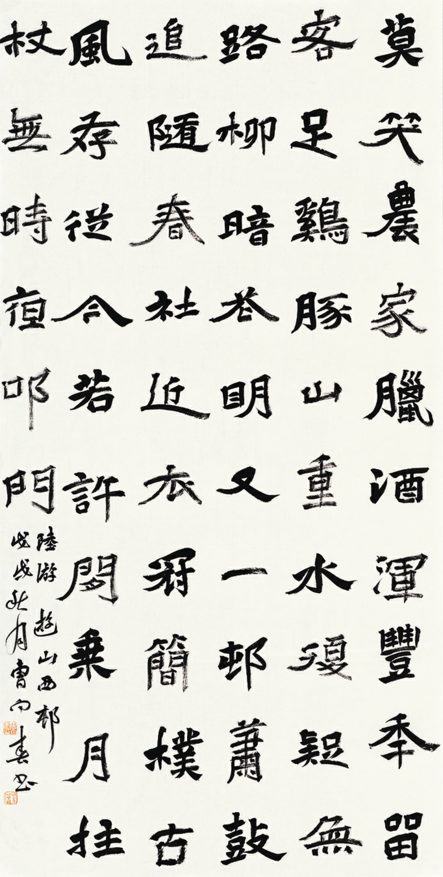 莫笑農家臘酒渾豐年留
客足鷄豚山重水複疑無
路柳暗花明又一邨蕭鼓
追隨春社近衣冠簡樸古
風存從今若許閒乘月拄
杖無時夜叩門
陸游 遊山西邨
戊戌秋月曹向春书